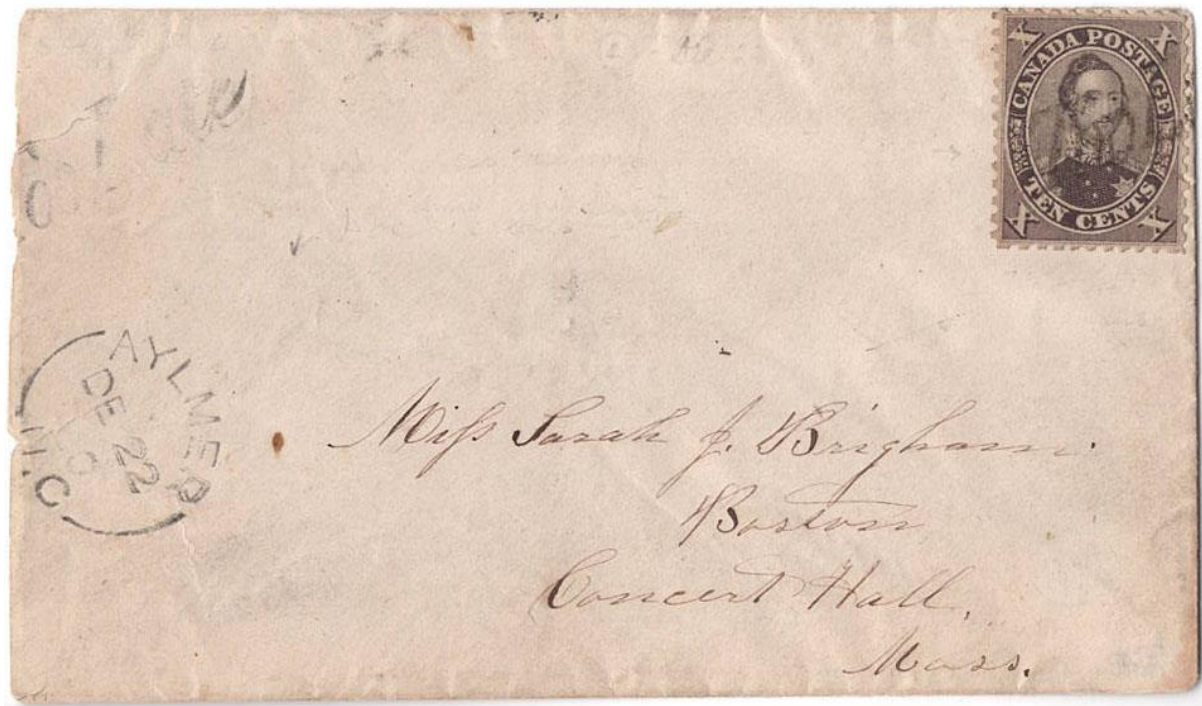 CANADA POSTAGE
TEN CENTS
X X X X
AYLMER
DE 22
U.C
Miſs Sarah J. Brigham.
Boston
Concert Hall,
Mass.